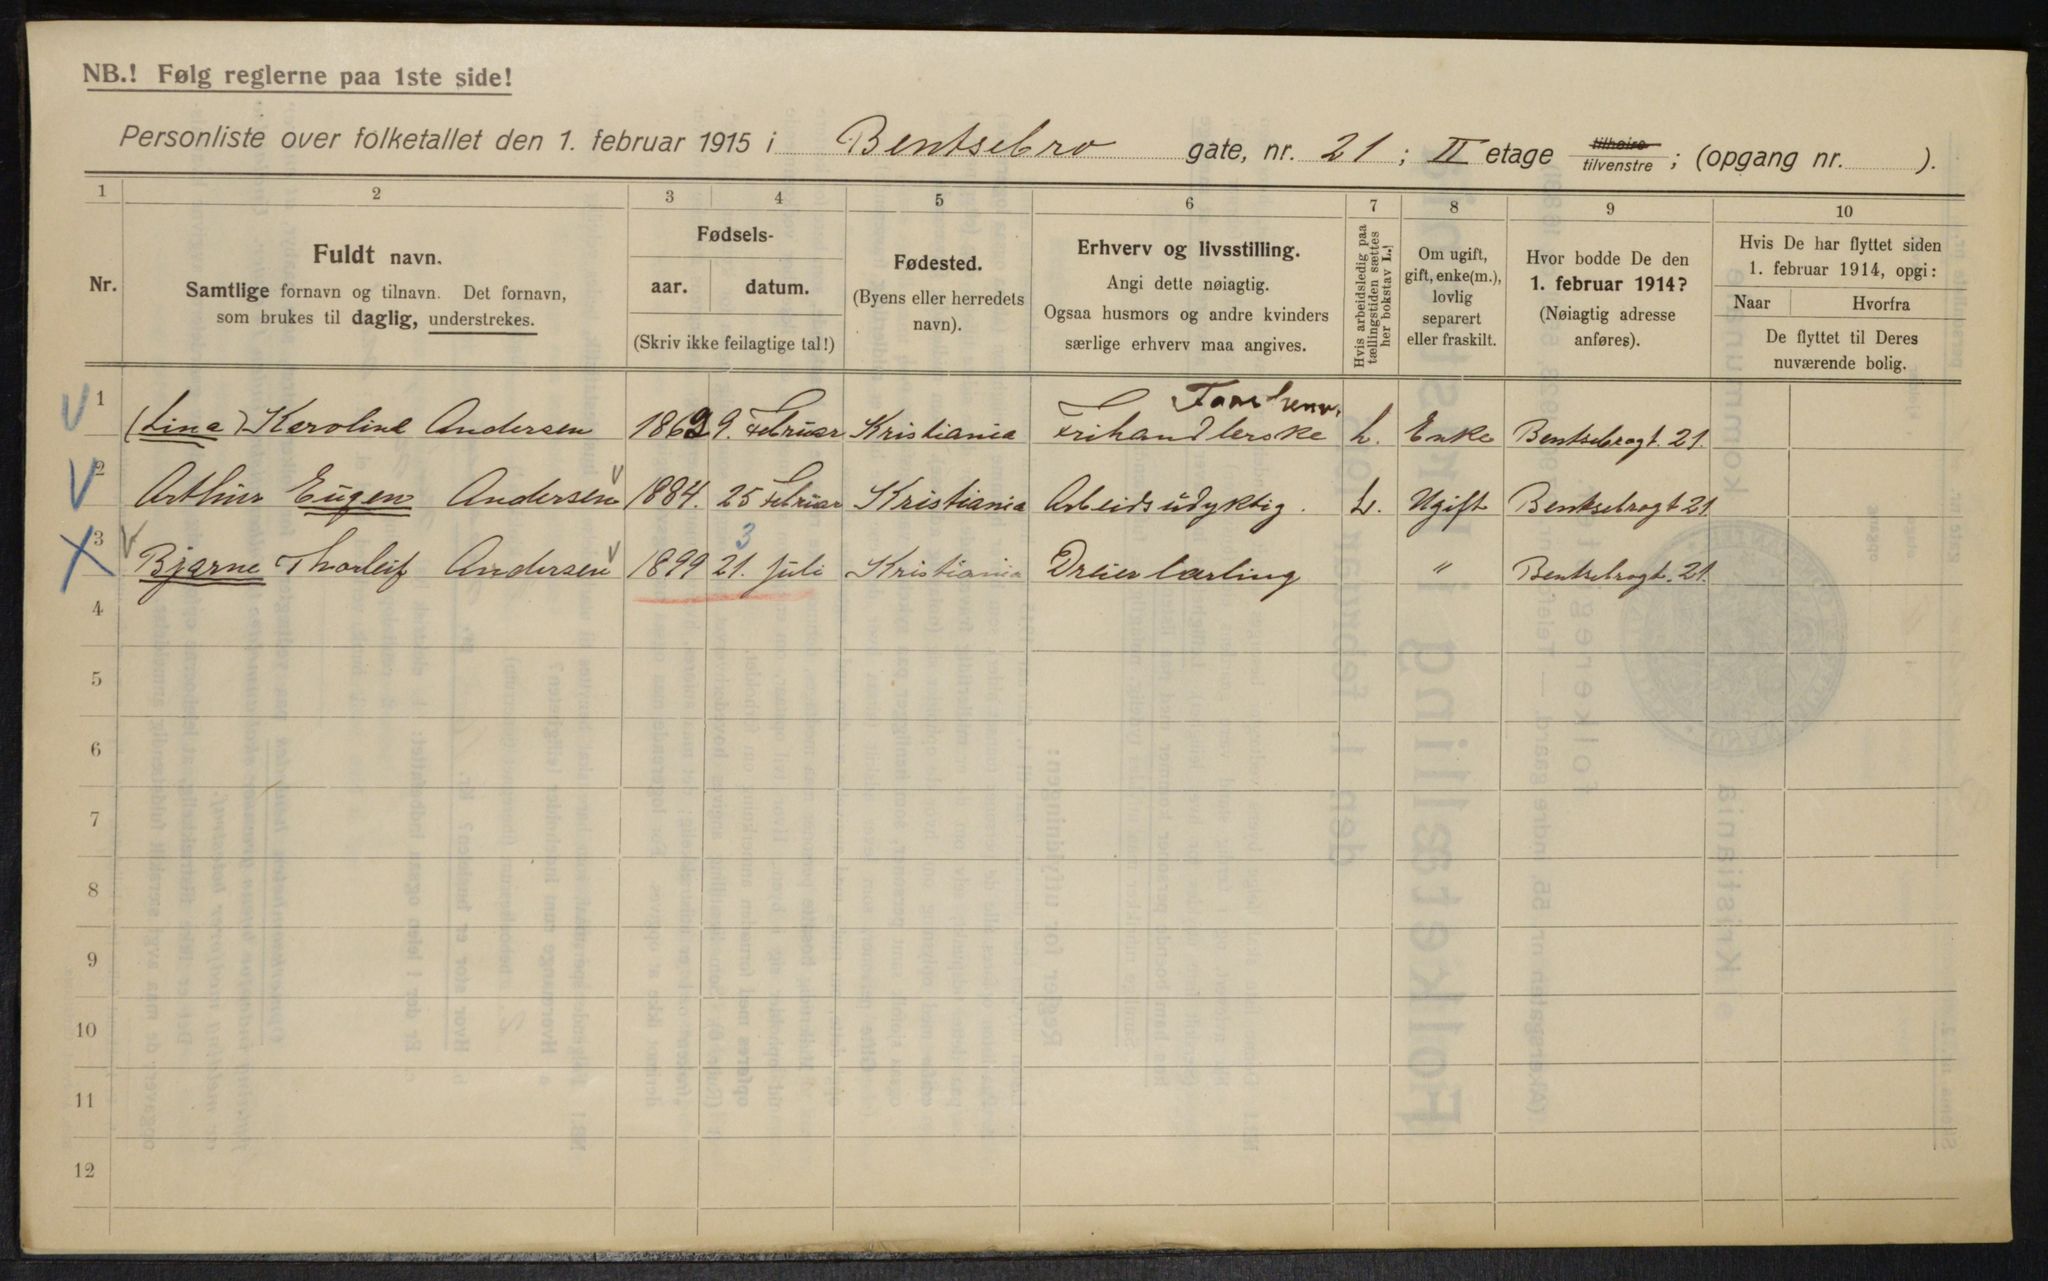 NB.! Følg reglerne paa 1ste side!
Personliste over folketallet den 1. februar 1915 i Bentsebro gate, nr. 21; II etage tilhøire tilvenstre; (opgang nr. ).
1 2 3 4 5 6 7 8 9 10
Nr.
Fuldt navn.
Samtlige fornavn og tilnavn. Det fornavn,
som brukes til daglig, understrekes.
Fødsels-
aar. datum.
(Skriv ikke feilagtige tal!)
Fødested.
(Byens eller herredets
navn).
Erhverv og livsstilling.
Angi dette nøiagtig.
Ogsaa husmors og andre kvinders
særlige erhverv maa angives.
Hvis arbeidsledig paa
tællingstiden sættes
her bokstav L.!
Om ugift,
gift, enke(m.),
lovlig
separert
eller fraskilt.
Hvor bodde De den
1. februar 1914?
(Nøiagtig adresse
anføres).
Hvis De har flyttet siden
1. februar 1914, opgi:
Naar Hvorfra
De flyttet til Deres
nuværende bolig.
1 (Lina) Karoline Andersen 1869 9. Februar Kristiania Frihandlerske L. Enke Bentsebrogt. 21.
2 Arthur Eugen Andersen 1884. 25 Februar Kristiania Arbeidsudyktig. L. Ugift Bentsebrogt 21.
3
3 Bjarne Thorleif Andersen 1899 21. Juli Kristiania Dreierlærling " Bentsebrogt. 21.
4
5
6
7
8
9
10
11
12